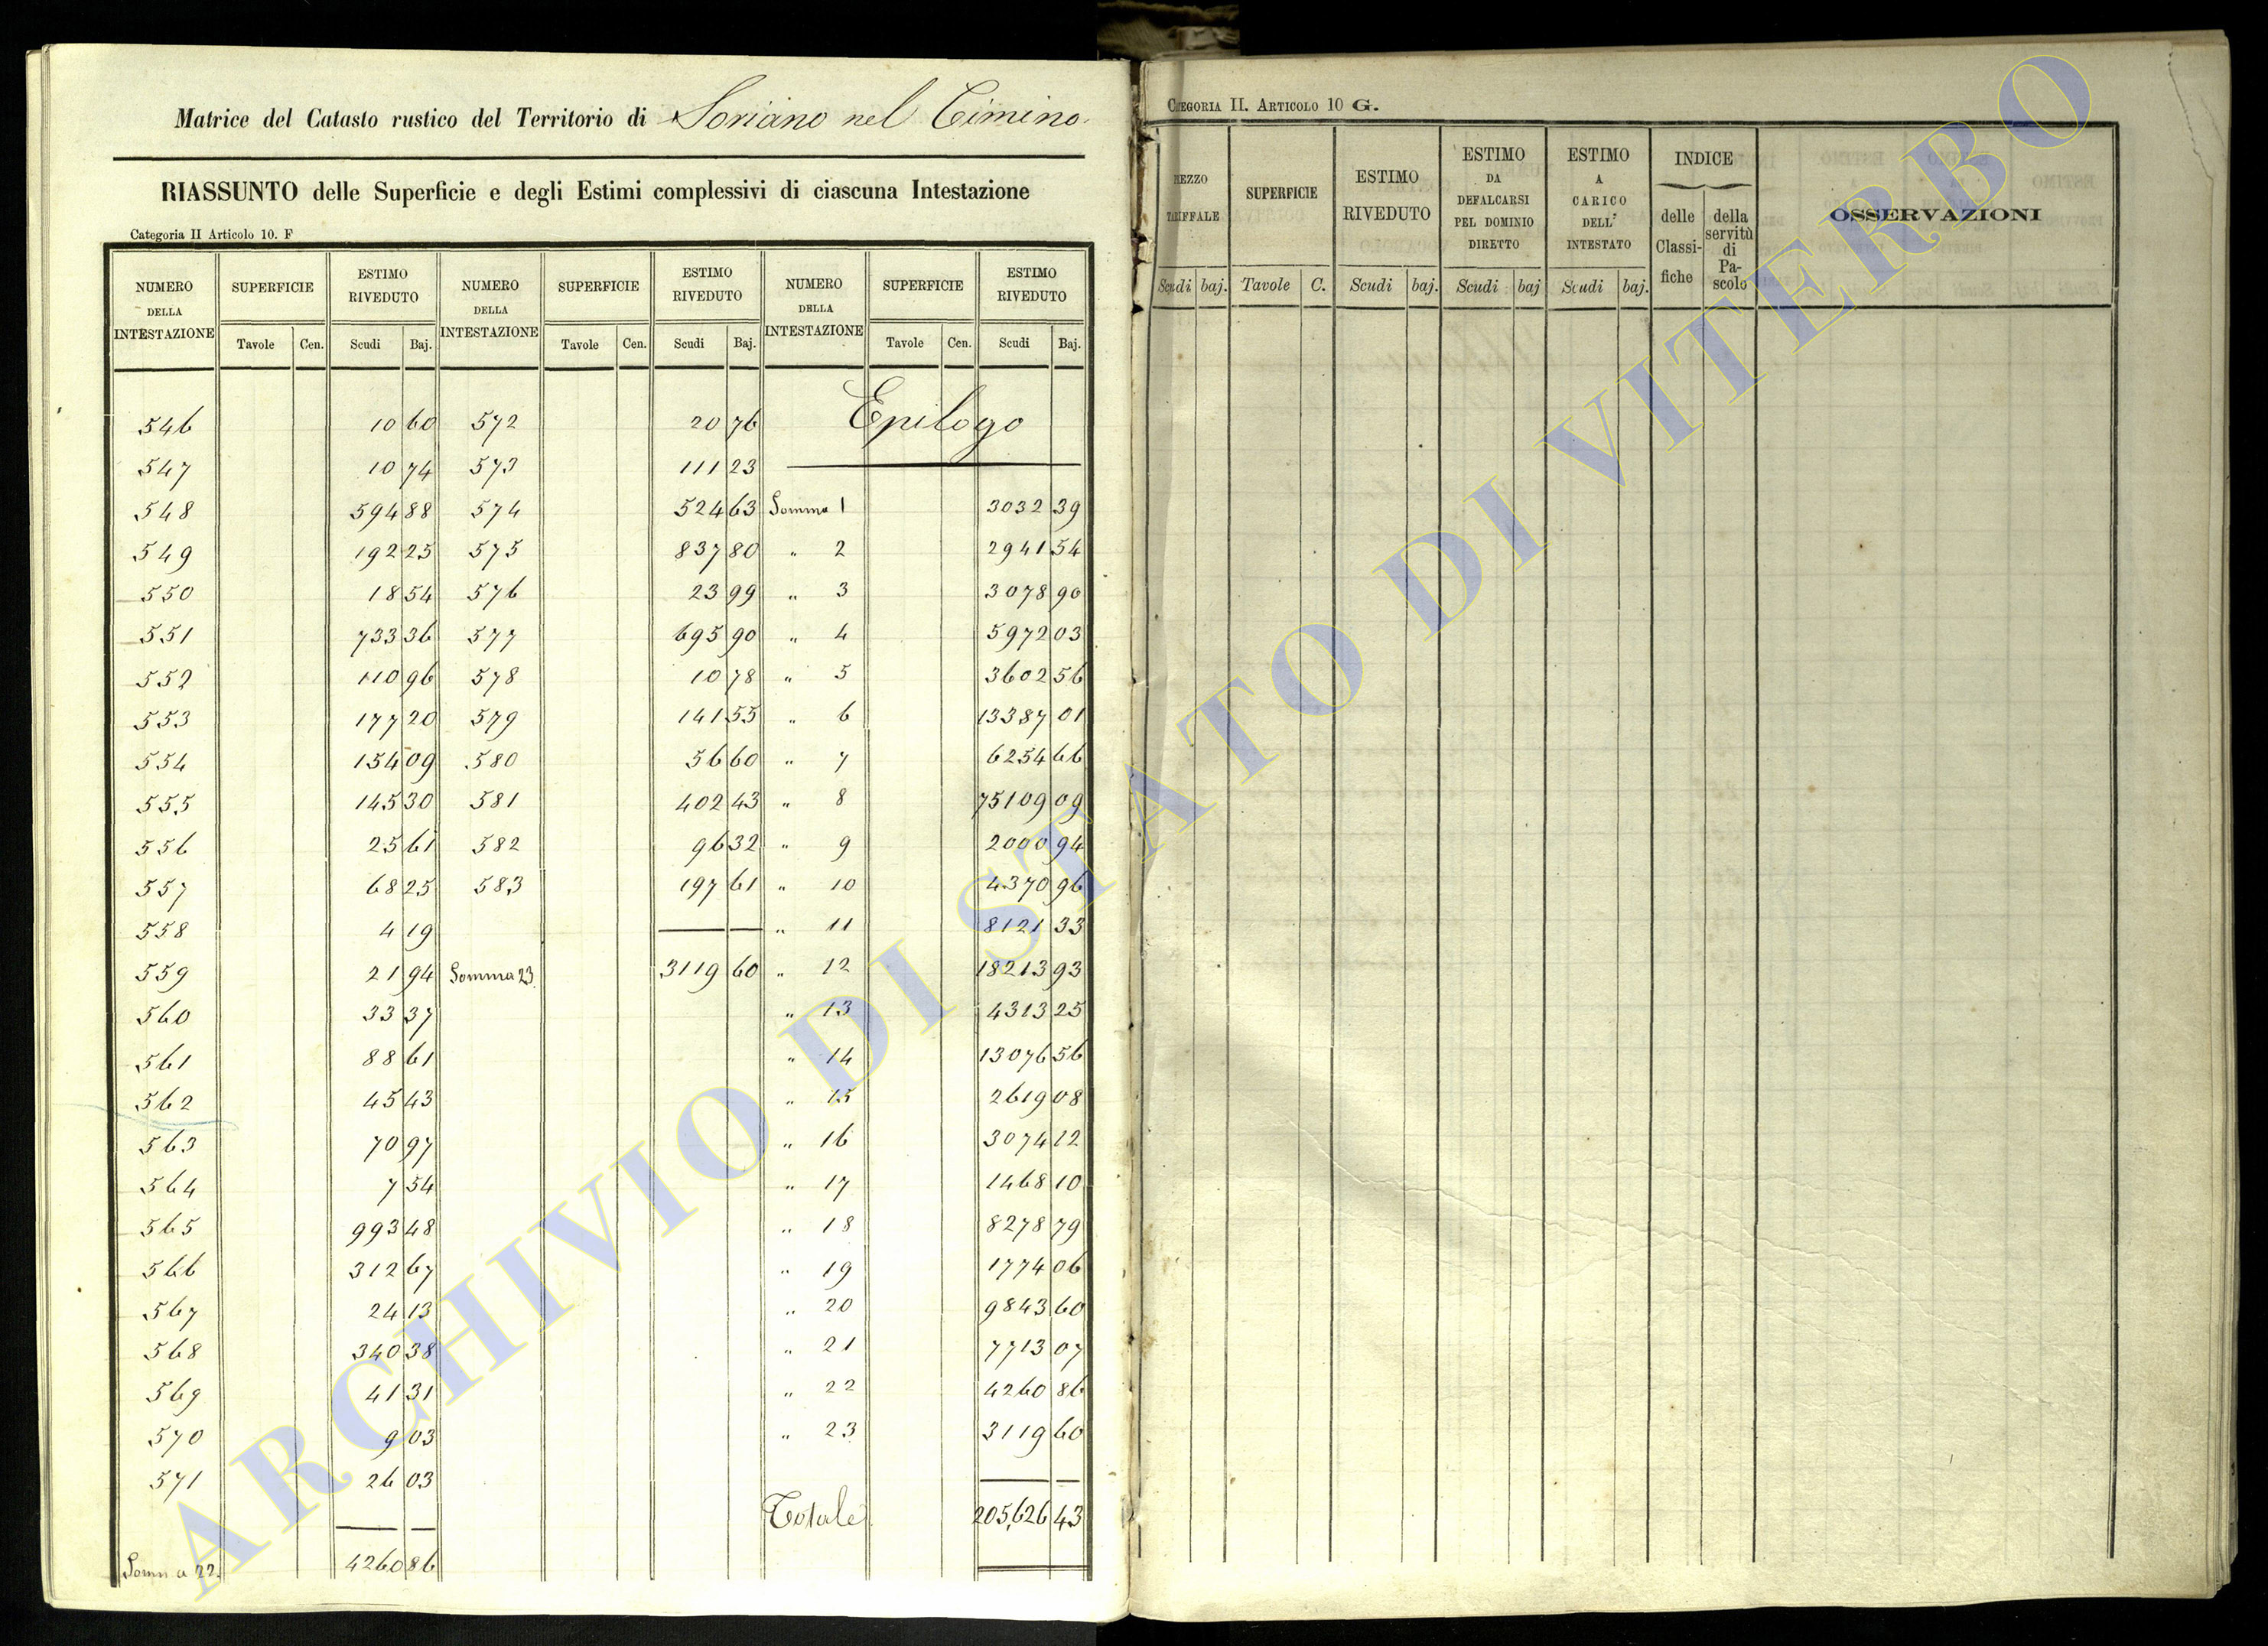 Matrice del Catasto rustico del Territorio di Soriano nel Cimino.
RIASSUNTO delle Superficie e degli Estimi complessivi di ciascuna Intestazione
Categoria II Articolo 10. F
NUMERO DELLA INTESTAZIONE SUPERFICIE ESTIMO RIVEDUTO NUMERO DELLA INTESTAZIONE SUPERFICIE ESTIMO RIVEDUTO NUMERO DELLA INTESTAZIONE SUPERFICIE ESTIMO RIVEDUTO
Tavole Cen. Scudi Baj. Tavole Cen. Scudi Baj. Tavole Cen. Scudi Baj.
546 10 60 572 20 76 Epilogo
547 10 74 573 111 23
548 594 88 574 524 63 Somma 1 3032 39
549 192 25 575 837 80 " 2 2941 54
550 18 54 576 23 99 " 3 3078 90
551 733 36 577 695 90 " 4 5972 03
552 110 96 578 10 78 " 5 3602 56
553 177 20 579 141 55 " 6 13387 01
554 154 09 580 56 60 " 7 6254 66
555 145 30 581 402 43 " 8 75109 09
556 25 61 582 96 32 " 9 2000 94
557 68 25 583 197 61 " 10 4370 96
558 4 19 " 11 8121 33
559 21 94 Somma 23 3119 60 " 12 18213 93
560 33 37 " 13 4313 25
561 88 61 " 14 13076 56
562 45 43 " 15 2619 08
563 70 97 " 16 3074 12
564 7 54 " 17 1468 10
565 993 48 " 18 8278 79
566 312 67 " 19 1774 06
567 24 13 " 20 9843 60
568 340 38 " 21 7713 07
569 41 31 " 22 4260 86
570 9 03 " 23 3119 60
571 26 03
Totale 205,626 43
Somma 22. 4260 86
CATEGORIA II. ARTICOLO 10 G.
PREZZO TARIFFALE SUPERFICIE ESTIMO RIVEDUTO ESTIMO DA DEFALCARSI PEL DOMINIO DIRETTO ESTIMO A CARICO DELL' INTESTATO INDICE OSSERVAZIONI
delle Classifiche della servitù di Pascolo
Scudi baj. Tavole C. Scudi baj. Scudi baj Scudi baj.
ARCHIVIO DI STATO DI VITERBO